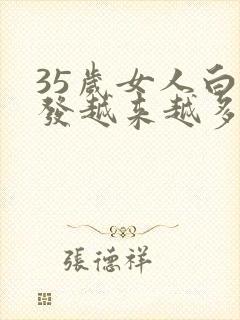 35歲女人白
發越來越多
張德祥